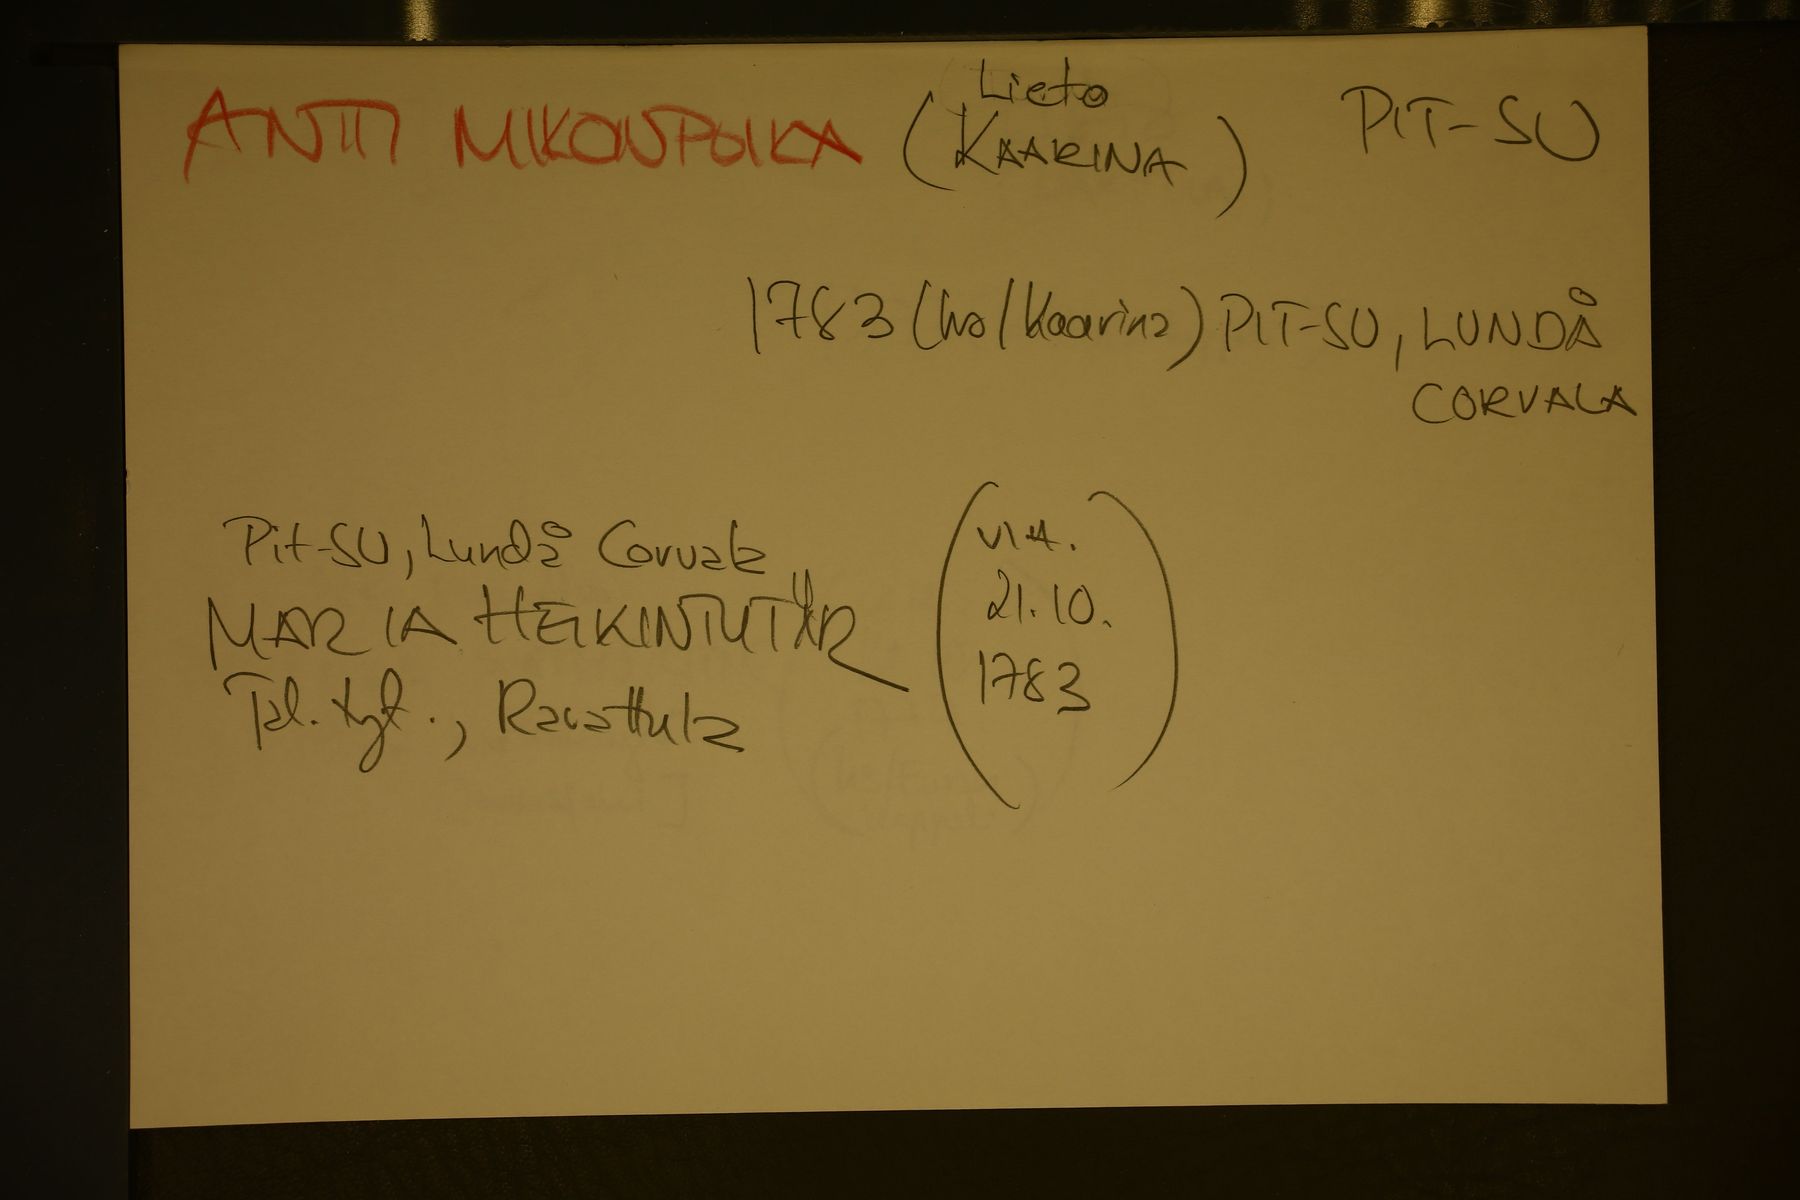 ANTTI MIKONPOIKA (Lieto KAARINA) PIT-SU
1783 (hs/Kaarina) PIT-SU, LUNDÅ
CORVALA
Pit-SU, Lundå Corvala
MARIA HEIKINTYTÄR
Tal. tyt., Ravattula
(VIH.
21.10.
1783)